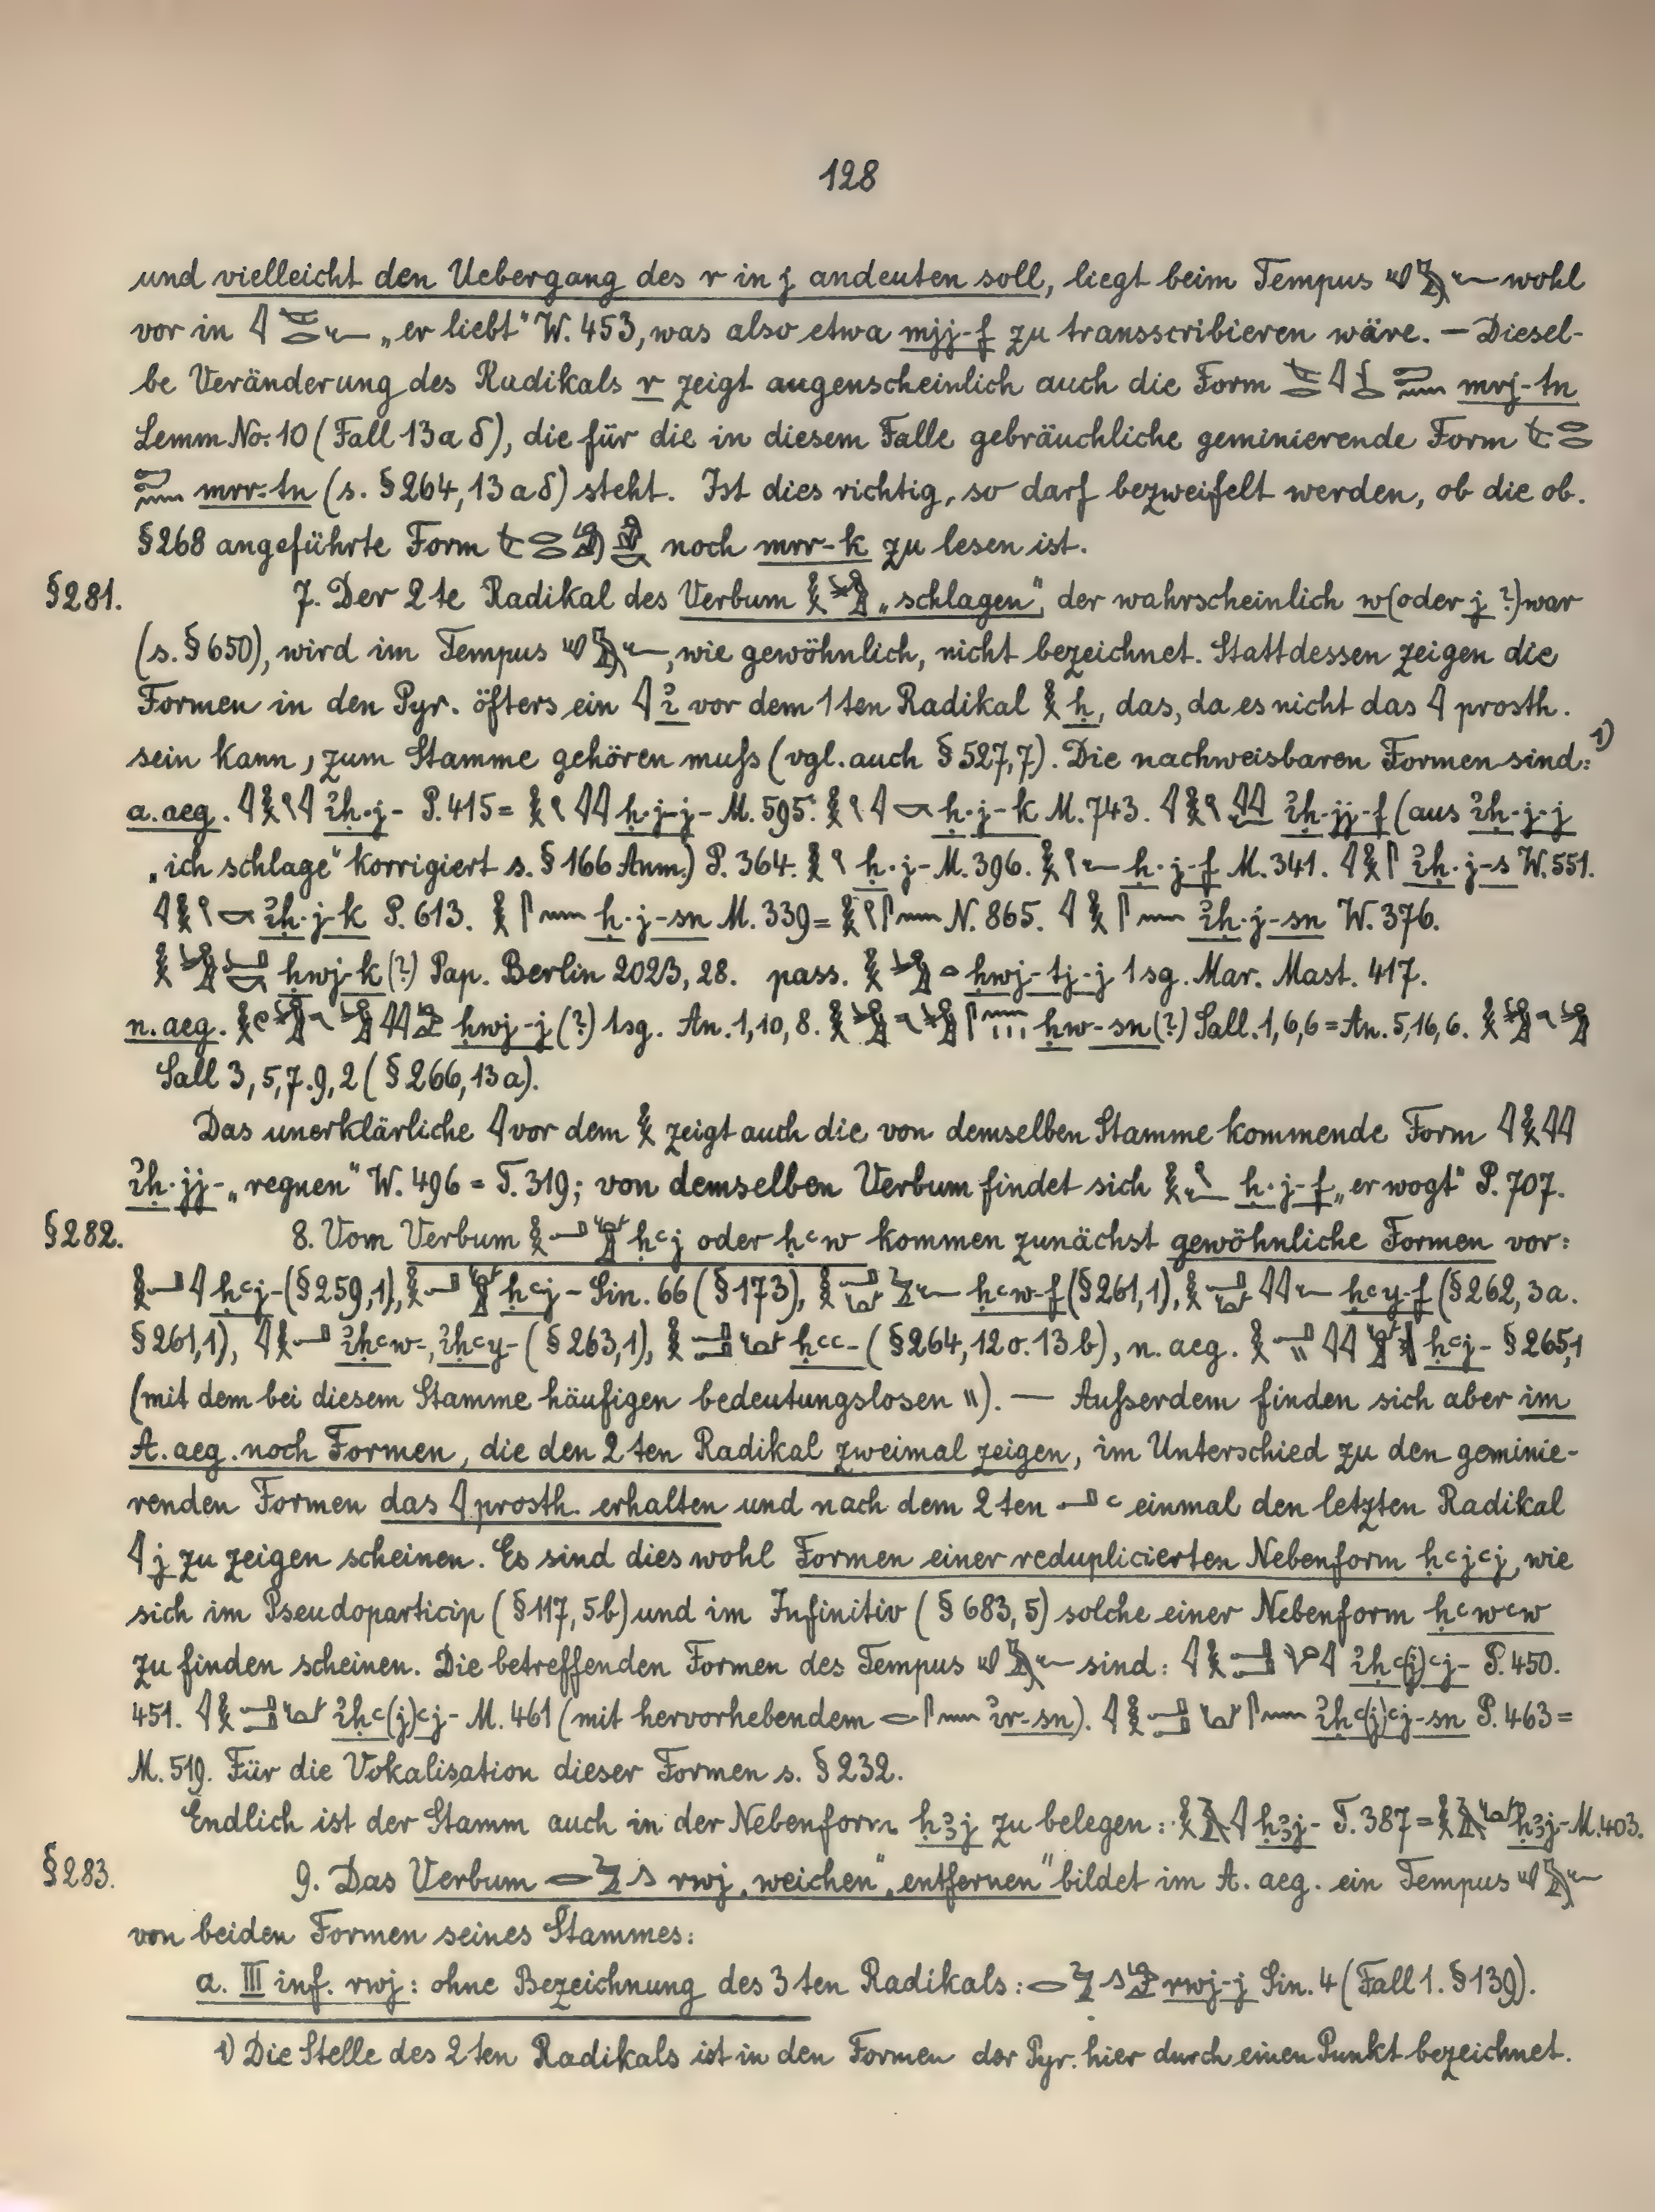 128
und vielleicht den Uebergang des r in j andeuten soll, liegt beim Tempus 𓄟𓅱𓆑 wohl
vor in 𓇋 „er liebt“ W. 453, was also etwa mjj-f zu transscribieren wäre. — Diesel-
be Veränderung des Radikals r zeigt augenscheinlich auch die Form mrj-tn
Lemm No. 10 (Fall 13 a δ), die für die in diesem Falle gebräuchliche geminierende Form
mrr-tn (s. § 264, 13 a δ) steht. Ist dies richtig, so darf bezweifelt werden, ob die ob.
§ 268 angeführte Form noch mrr-k zu lesen ist.
§ 281. 7. Der 2te Radikal des Verbum „schlagen“, der wahrscheinlich w (oder j ?) war
(s. § 650), wird im Tempus , wie gewöhnlich, nicht bezeichnet. Stattdessen zeigen die
Formen in den Pyr. öfters ein 𓇋 ỉ vor dem 1ten Radikal 𓎛 ḥ, das, da es nicht das 𓇋 prosth.
sein kann, zum Stamme gehören muſs (vgl. auch § 527,7). Die nachweisbaren Formen sind: 1)
a. aeg. ỉḥ·j- P. 415 = ḥ·j-j- M. 595. ḥ·j-k M. 743. ỉḥ·jj-f (aus ỉḥ·j-j
„ich schlage“ korrigiert s. § 166 Anm.) P. 364. ḥ·j- M. 396. ḥ·j-f M. 341. ỉḥ·j-s W. 551.
ỉḥ·j-k P. 613. ḥ·j-sn M. 339 = N. 865. ỉḥ·j-sn W. 376.
ḥwj-k (?) Pap. Berlin 2023, 28. pass. ḥwj-tj-j 1 sg. Mar. Mast. 417.
n. aeg. ḥwj-j (?) 1sg. An. 1, 10, 8. ḥw-sn (?) Sall. 1, 6, 6 = An. 5, 16, 6.
Sall 3, 5, 7. 9, 2 (§ 266, 13 a).
Das unerklärliche 𓇋 vor dem 𓎛 zeigt auch die von demselben Stamme kommende Form 𓇋𓎛𓇋𓇋
ỉḥ·jj- „regnen“ W. 496 = T. 319; von demselben Verbum findet sich ḥ·j-f „er wogt“ P. 707.
§ 282. 8. Vom Verbum ḥꜥj oder ḥꜥw kommen zunächst gewöhnliche Formen vor:
𓎛𓂝𓇋 ḥꜥj- (§ 259, 1), ḥꜥj- Sin. 66 (§ 173), ḥꜥw-f (§ 261, 1), ḥꜥy-f (§ 262, 3 a.
§ 261, 1), 𓇋𓎛𓂝 ỉḥꜥw-, ỉḥꜥy- (§ 263, 1), ḥꜥꜥ- (§ 264, 12 o. 13 b), n. aeg. ḥꜥj- § 265, 1
(mit dem bei diesem Stamme häufigen bedeutungslosen 𓏭). — Auſserdem finden sich aber im
A. aeg. noch Formen, die den 2ten Radikal zweimal zeigen, im Unterschied zu den geminie-
renden Formen das 𓇋 prosth. erhalten und nach dem 2ten 𓂝 ꜥ einmal den letzten Radikal
𓇋 j zu zeigen scheinen. Es sind dies wohl Formen einer reduplicierten Nebenform ḥꜥjꜥj, wie
sich im Pseudoparticip (§ 117, 5b) und im Infinitiv (§ 683, 5) solche einer Nebenform ḥꜥwꜥw
zu finden scheinen. Die betreffenden Formen des Tempus sind: ỉḥꜥ(j)ꜥj- P. 450.
451. ỉḥꜥ(j)ꜥj- M. 461 (mit hervorhebendem ỉr-sn). ỉḥꜥ(j)ꜥj-sn P. 463 =
M. 519. Für die Vokalisation dieser Formen s. § 232.
Endlich ist der Stamm auch in der Nebenform ḥꜣj zu belegen: ḥꜣj- T. 387 = ḥꜣj- M. 403.
§ 283. 9. Das Verbum rwj „weichen“ „entfernen“ bildet im A. aeg. ein Tempus
von beiden Formen seines Stammes:
a. III inf. rwj: ohne Bezeichnung des 3ten Radikals: rwj-j Sin. 4 (Fall 1. § 139).
1) Die Stelle des 2ten Radikals ist in den Formen der Pyr. hier durch einen Punkt bezeichnet.